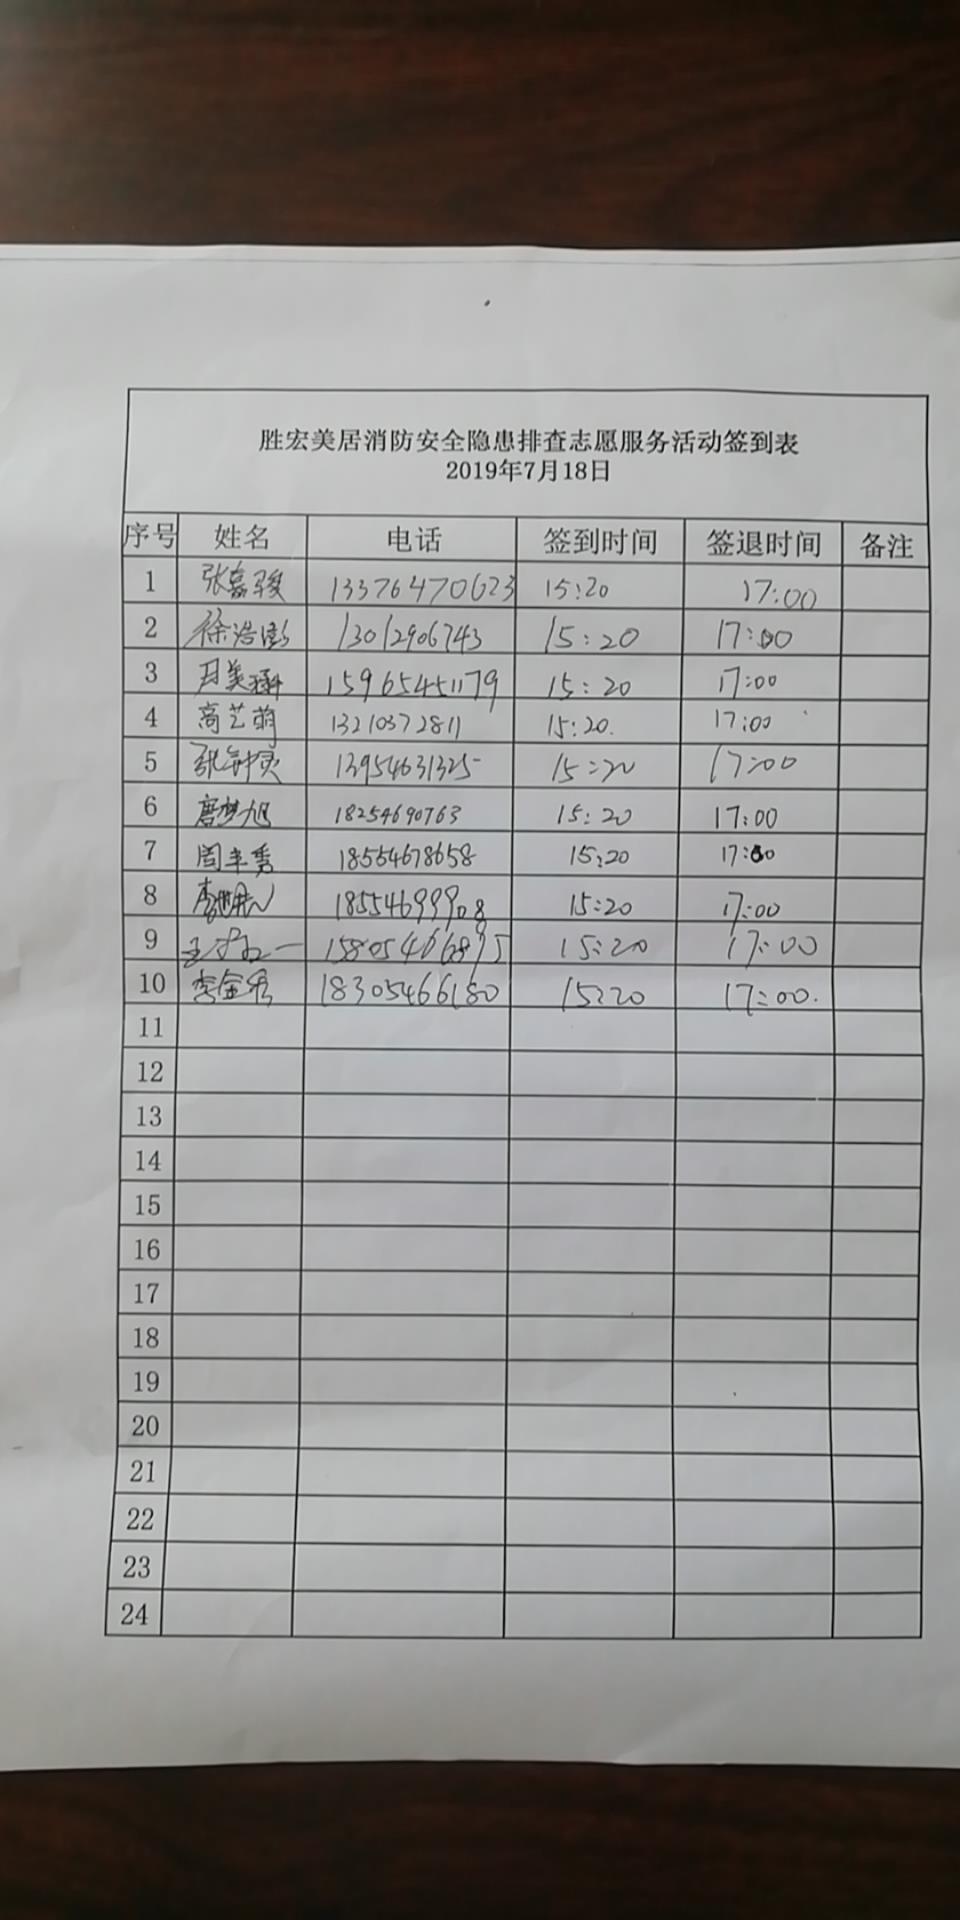 胜宏美居消防安全隐患排查志愿服务活动签到表
2019年7月18日
序号 姓名 电话 签到时间 签退时间 备注
1 张嘉骏 13376470623 15:20 17:00
2 徐浩澎 13012906743 15:20 17:00
3 月美涵 15965451179 15:20 17:00
4 高艺萌 13210372811 15:20. 17:00
5 张钟灵 13954631325 15:20 17:00
6 唐梦旭 18254690763 15:20 17:00
7 周丰秀 18554678658 15:20 17:00
8 李 18554699908 15:20 17:00
9 王 一 15805466895 15:20 17:00
10 李金秀 18305466180 15:20 17:00.
11
12
13
14
15
16
17
18
19
20
21
22
23
24